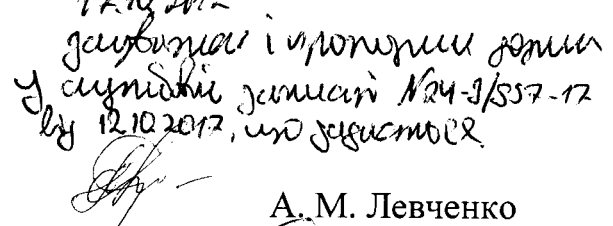 17.10.2017
зауваження і пропозиції
у службовій записці №24-3/557-17
від 12.10.2017, що додається.
А. М. Левченко